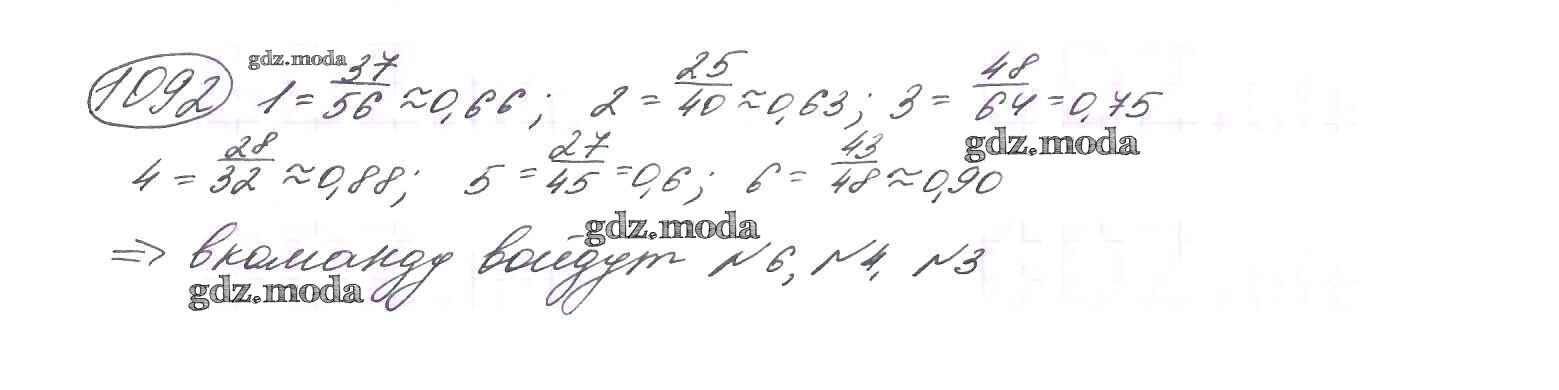 gdz.moda
1092 1 = 37/56 ≈ 0,66; 2 = 25/40 ≈ 0,63; 3 = 48/64 = 0,75
gdz.moda
4 = 28/32 ≈ 0,88; 5 = 27/45 = 0,6; 6 = 43/48 ≈ 0,90
gdz.moda
=> в команду войдут №6, №4, №3
gdz.moda